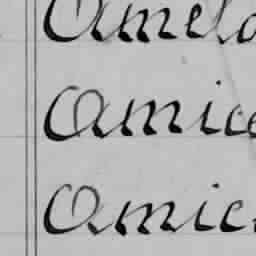 Amela
Amice
Amice